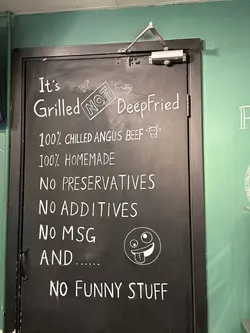 It's
Grilled NOT DeepFried
100% CHILLED ANGUS BEEF
100% HOMEMADE
NO PRESERVATIVES
NO ADDITIVES
NO MSG
AND.....
NO FUNNY STUFF